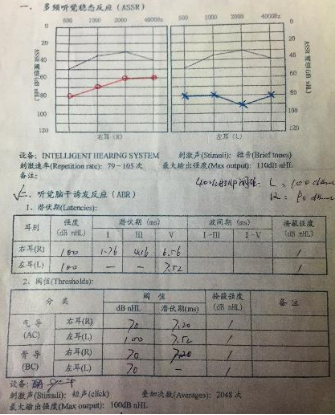 一、多频听觉稳态反应（ASSR）
500 1000 2000 4000Hz 500 1000 2000 4000Hz
0 0
20 20
40 40
60 60
80 80
100 100
120 120
右耳(R) 左耳(L)
设备：INTELLIGENT HEARING SYSTEM 刺激声(Stimuli)：短音(Brief tones)
刺激速率(Repetition rate)：79～105次 最大输出强度(Max output)：110dB nHL
备注：
二、听觉脑干诱发反应（ABR）
1. 潜伏期(Latencies)：
耳别 强度 (dB nHL) 潜伏期 (ms) 波间期 (ms) 掩蔽强度 (dB nHL)
I III V I-III I-V
右耳(R) 100 1.76 4.16 6.56 /
左耳(L) 100 — — 7.52 /
2. 阈值(Thresholds)：
分类 阈值 掩蔽强度 (dB nHL) 备注
dB nHL 潜伏期(ms)
气导 (AC) 右耳(R) 70 7.20 /
左耳(L) 100 7.52 /
骨导 (BC) 右耳(R) 70 7.20 /
左耳(L) 70 — /
设备：
刺激声(Stimuli)：短声(click) 叠加次数(Averages)：2048 次
最大输出强度(Max output)：100dB nHL